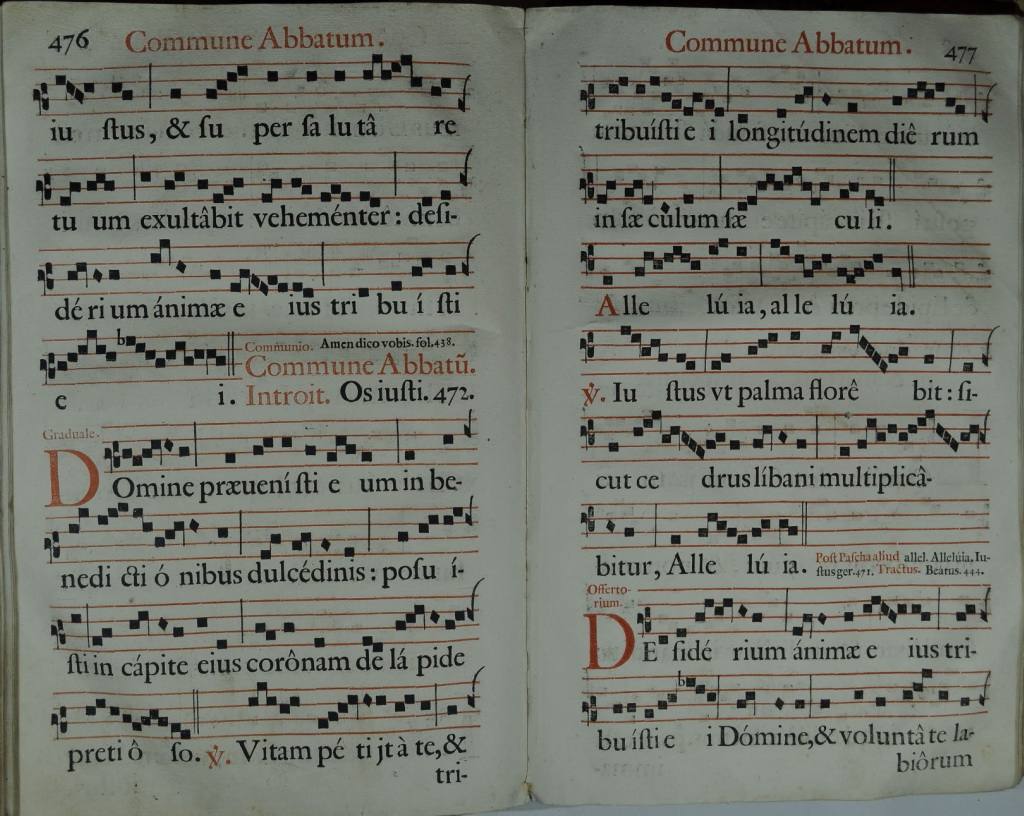 476 Commune Abbatum.
iu ſtus, & ſu per ſa lu tâ re
tu um exultâbit veheménter: deſi-
dé ri um ánimæ e ius tri bu í ſti
Communio. Amen dico vobis. fol. 438.
Commune Abbatũ.
e i. Introit. Os iuſti. 472.
Graduale.
DOmine præuení ſti e um in be-
nedi cti ó nibus dulcédinis: poſu í-
ſti in cápite eius corônam de lá pide
preti ô ſo. ℣. Vitam pé ti jt à te, &
tri-
Commune Abbatum. 477
tribuíſti e i longitúdinem diê rum
in ſæ cûlum ſæ cu li.
Alle lú ia, al le lú ia.
℣. Iu ſtus vt palma florê bit: ſi-
cut ce drus líbani multiplicâ-
bitur, Alle lú ia. Poſt Paſcha aliud allel. Allelúia. Iu-
ſtus ger. 471. Tractus. Beátus. 444.
Offerto-
rium.
DE ſidé rium ánimæ e ius tri-
bu íſti e i Dómine, & voluntâ te la-
biôrum